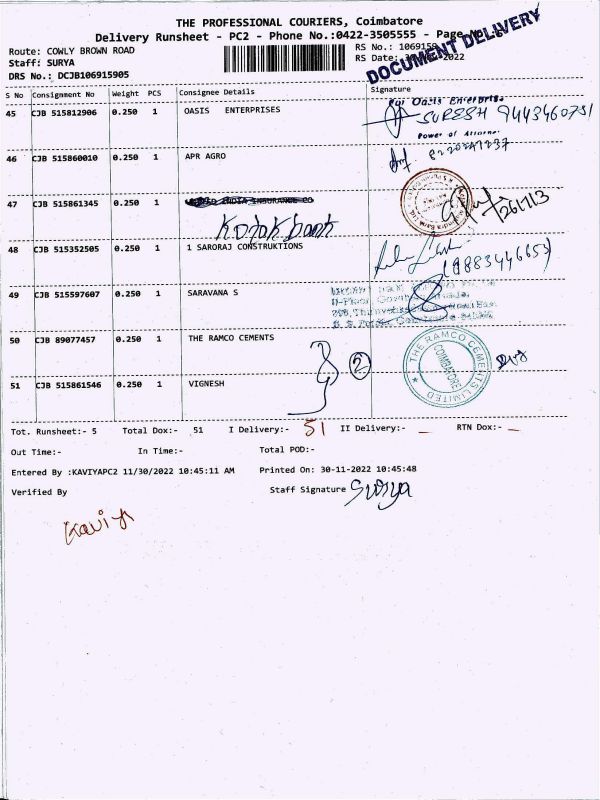 THE PROFESSIONAL COURIERS, Coimbatore
Delivery Runsheet - PC2 - Phone No.:0422-3505555 - Page
Route: COWLY BROWN ROAD
RS No.: 1069159
Staff: SURYA
RS Date: -2022
DOCUMENT DELIVERY
DRS No.: DCJB106915905
S No Consignment No Weight PCS Consignee Details Signature
45 CJB 515812906 0.250 1 OASIS ENTERPRISES
For Oasis Enterprise
SURESH 9443460751
Power of Attorney
46 CJB 515860010 0.250 1 APR AGRO
8220247237
47 CJB 515861345 0.250 1 INDIA INSURANCE CO
Kotak bank
261713
48 CJB 515352505 0.250 1 1 SARORAJ CONSTRUKTIONS
49 CJB 515597607 0.250 1 SARAVANA S
50 CJB 89077457 0.250 1 THE RAMCO CEMENTS
THE RAMCO CEMENTS LIMITED
COIMBATORE
2
51 CJB 515861546 0.250 1 VIGNESH
Tot. Runsheet:- 5 Total Dox:- 51 I Delivery:- 51 II Delivery:- _ RTN Dox:- _
Out Time:- In Time:- Total POD:-
Entered By :KAVIYAPC2 11/30/2022 10:45:11 AM Printed On: 30-11-2022 10:45:48
Verified By Staff Signature Surya
Kaviya